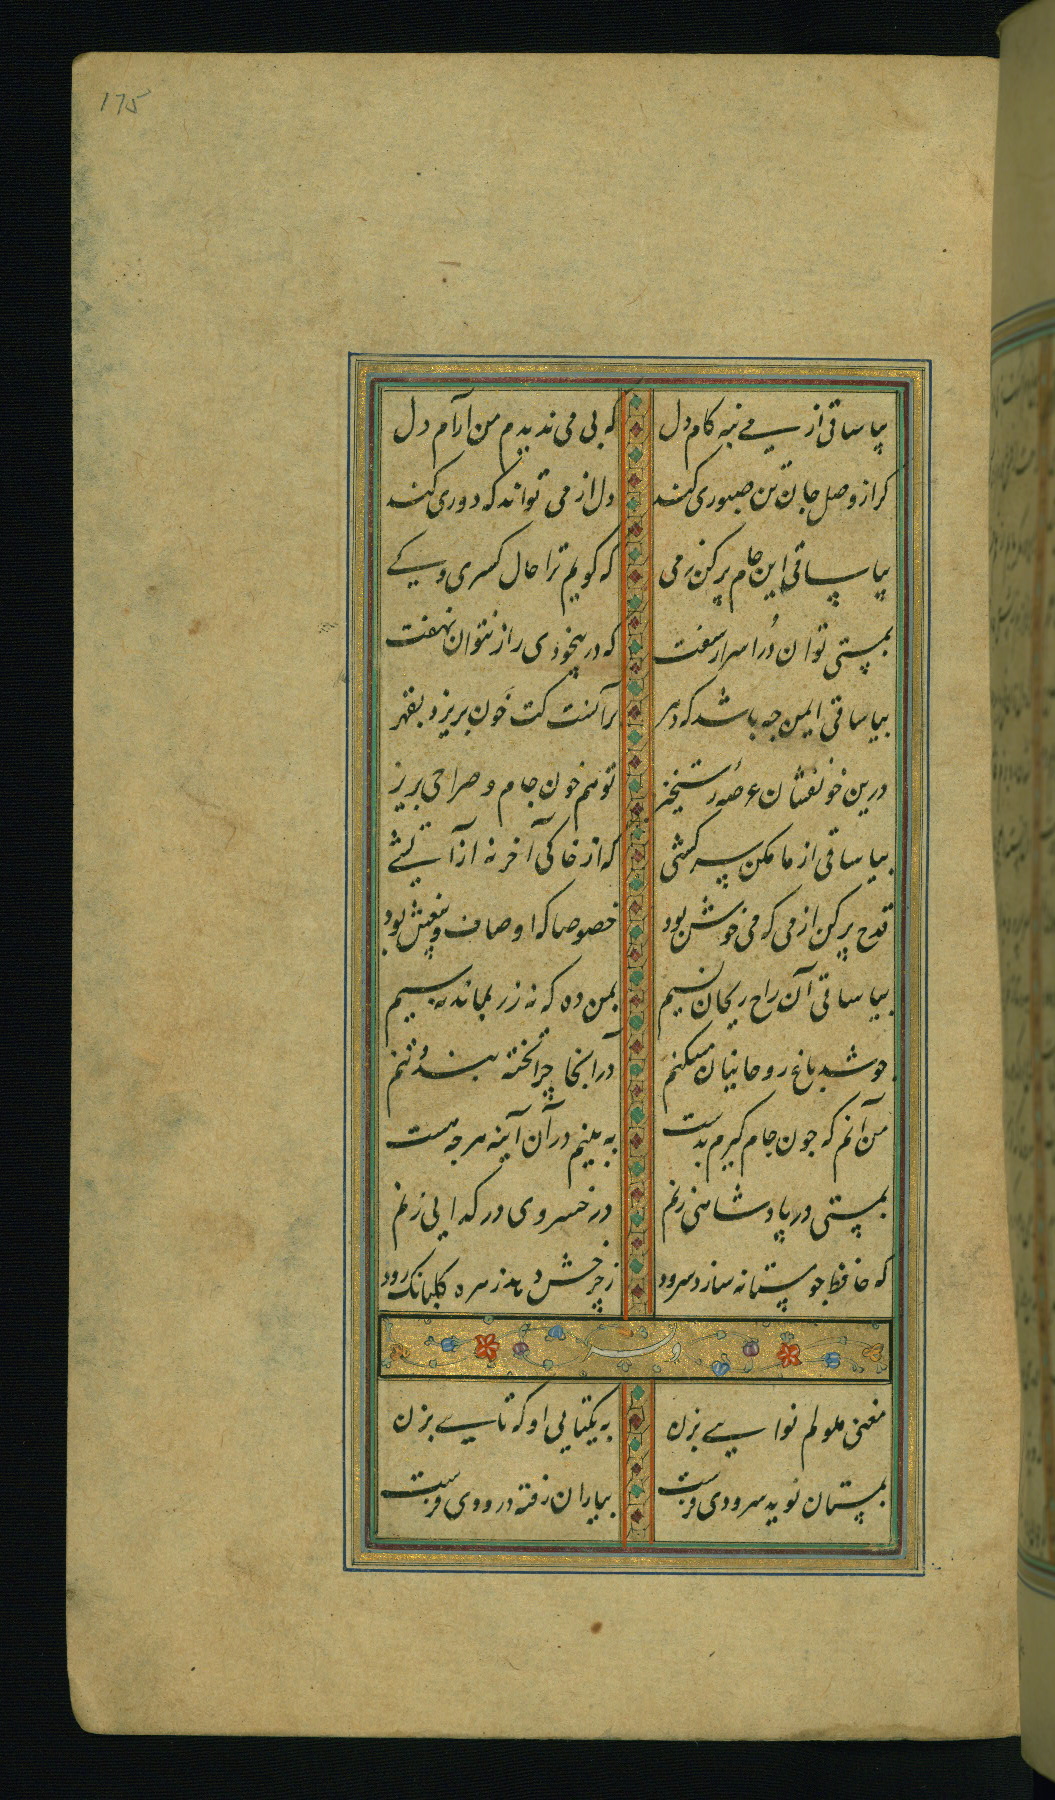 175
بیا ساقی از می بنه کام دل که بی می ندیدم من آرام دل
کر از وصل جان تن صبوری کند دل از می تواند که دوری کند
بیا ساقی این جام پر کن ز می که کویم ترا حال کسری و کی
بمستی توان دُر اسرار سفت که در بیخودی راز نتوان نهفت
بیا ساقی ایمن چه باشد که دهر بر آنست کت خون بریزد بقهر
درین خونفشان عرصهٔ رستخیز تو هم خون جام و صراحی بریز
بیا ساقی از ما مکن سرکشی که از خاکی آخر نه از آتشی
قدح پر کن از می که می خوش بود خصوصا که اوصاف و بیغش بود
بیا ساقی آن راح ریحان نسیم بمن ده که نه زر بماند نه سیم
چو شد باغ روحانیان مسکنم در انجا چرا تخته بند تنم
من آنم که چون جام کیرم بدست به بینم در آن آینه هرچه هست
بمستی در پادشاهی زنم در خسروی در کدایی زنم
که حافظ چو مستانه سازد سرود ز چرخش دهد زهره کلبانک رود
مغنی ملولم نوایی بزن به یکتایی او که تایی بزن
بمستان نوید سرودی فرست بیاران رفته درودی فرست